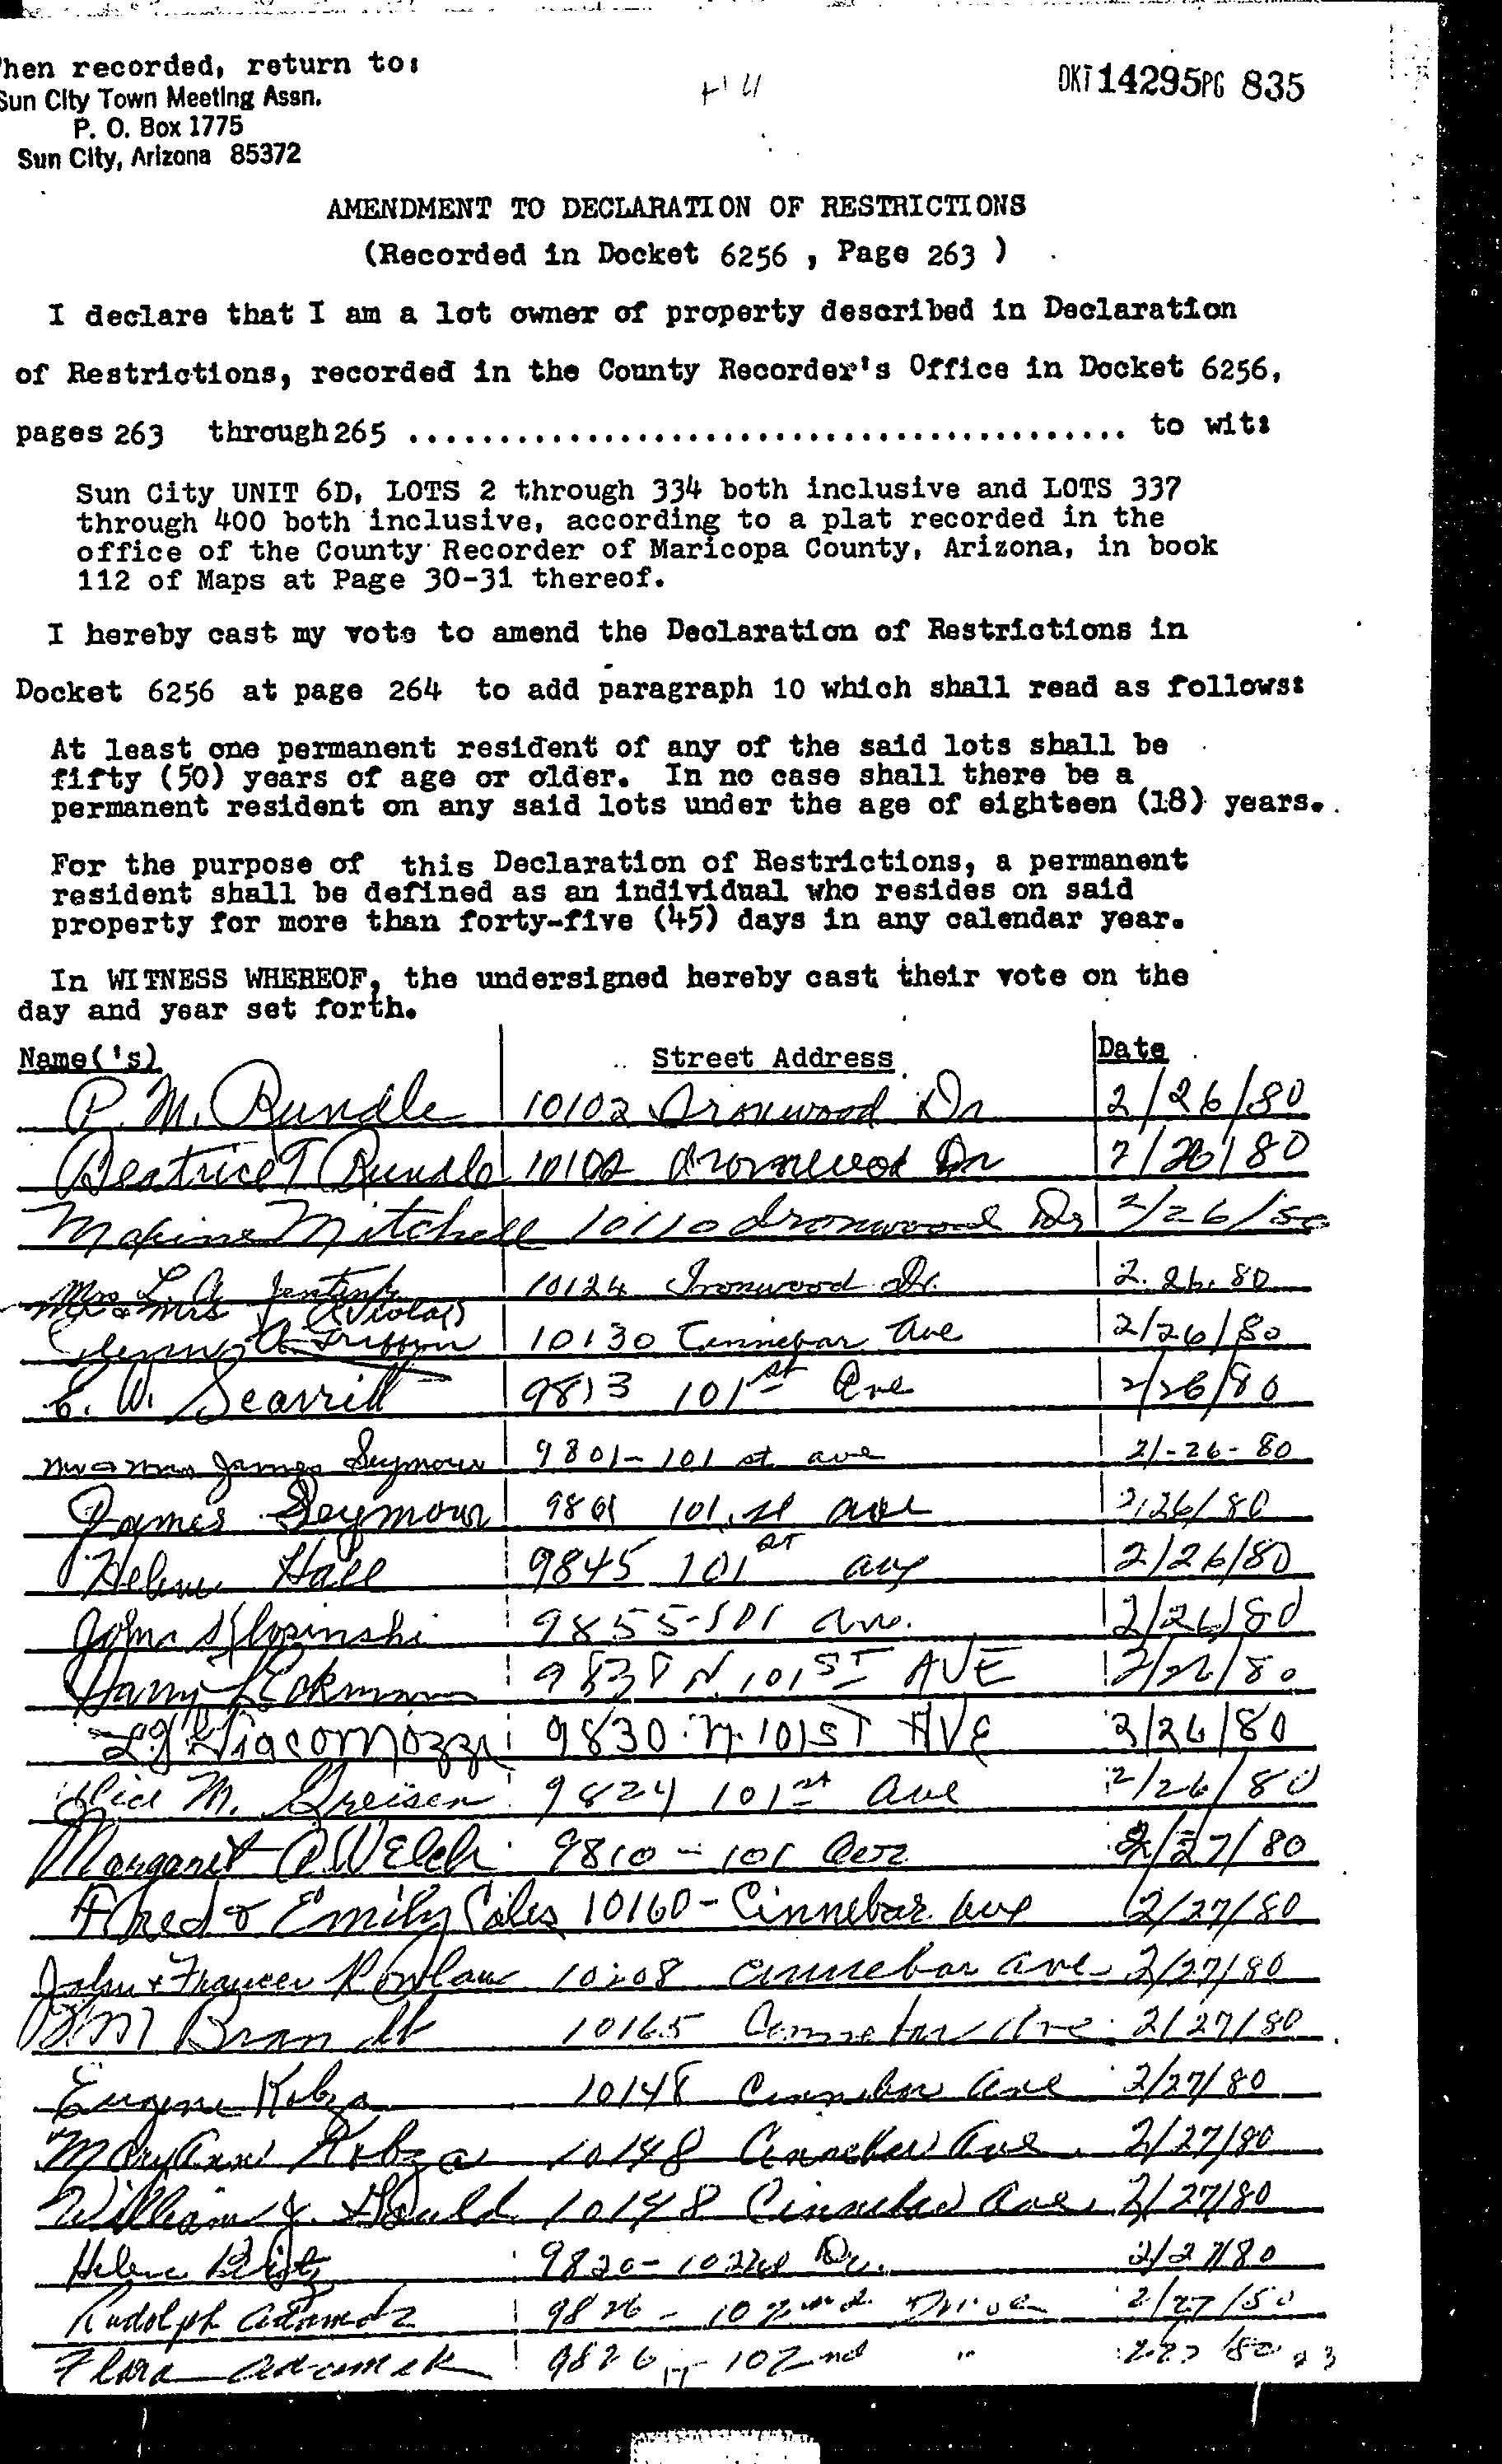 hen recorded, return to:
DKT 14295 PG 835
Sun City Town Meeting Assn.
P. O. Box 1775
Sun City, Arizona 85372
AMENDMENT TO DECLARATION OF RESTRICTIONS
(Recorded in Docket 6256 , Page 263 )
I declare that I am a lot owner of property described in Declaration
of Restrictions, recorded in the County Recorder's Office in Docket 6256,
pages 263 through 265 ................................................ to wit:
Sun City UNIT 6D, LOTS 2 through 334 both inclusive and LOTS 337
through 400 both inclusive, according to a plat recorded in the
office of the County Recorder of Maricopa County, Arizona, in book
112 of Maps at Page 30-31 thereof.
I hereby cast my vote to amend the Declaration of Restrictions in
Docket 6256 at page 264 to add paragraph 10 which shall read as follows:
At least one permanent resident of any of the said lots shall be
fifty (50) years of age or older. In no case shall there be a
permanent resident on any said lots under the age of eighteen (18) years.
For the purpose of this Declaration of Restrictions, a permanent
resident shall be defined as an individual who resides on said
property for more than forty-five (45) days in any calendar year.
In WITNESS WHEREOF, the undersigned hereby cast their vote on the
day and year set forth.
Name('s) Street Address Date
P. M. Rundle 10102 Ironwood Dr 2/26/80
Beatrice T Rundle 10102 Ironwood Dr 2/26/80
Maxine Mitchell 10110 Ironwood Dr 2/26/80
Mrs L. A. 10124 Ironwood Dr. 2.26.80
Mr & Mrs (Viola)
10130 Cinnebar Ave 2/26/80
E. W. Scarritt 9813 101st Ave 2/26/80
Mr & Mrs James Seymour 9801- 101 st ave 2/-26-80
James Seymour 9801 101 st ave 2/26/80
Helen Hall 9845 101st ave 2/26/80
John Slosinski 9855-101 ave. 2/26/80
Harry 9838 N. 101ST AVE 2/26/80
Giacomozzi 9830 N. 101ST AVE 2/26/80
Alice M. Greisen 9824 101st Ave 2/26/80
Margaret P Welch 9810 - 101 Ave 2/27/80
Fred & Emily Coles 10160- Cinnebar Ave 2/27/80
John & Frances Rowlan 10208 Cinnebar Ave 2/27/80
M Brandt 10165 Cinnebar Ave 2/27/80
Eugene Kobza 10148 Cinnebar Ave 2/27/80
Mary Ann Kobza 10148 Cinnebar Ave. 2/27/80
William J. Gould 10148 Cinnebar Ave. 2/27/80
Helen 9820- 102nd Dr. 2/27/80
Rudolph Adamek 9826 - 102nd Drive 2/27/80
Flora Adamek 9826 - 102nd " 2/27/80